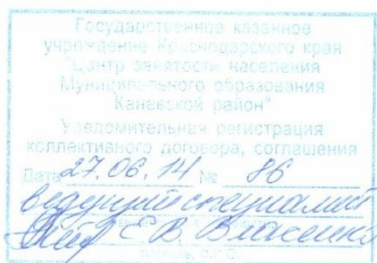 Государственное казенное
учреждение Краснодарского края
"Центр занятости населения
Муниципального образования
Каневской район"
Уведомительная регистрация
коллективного договора, соглашения
Дата 27.06.14 № 86
ведущий специалист
Е.В. Власенко